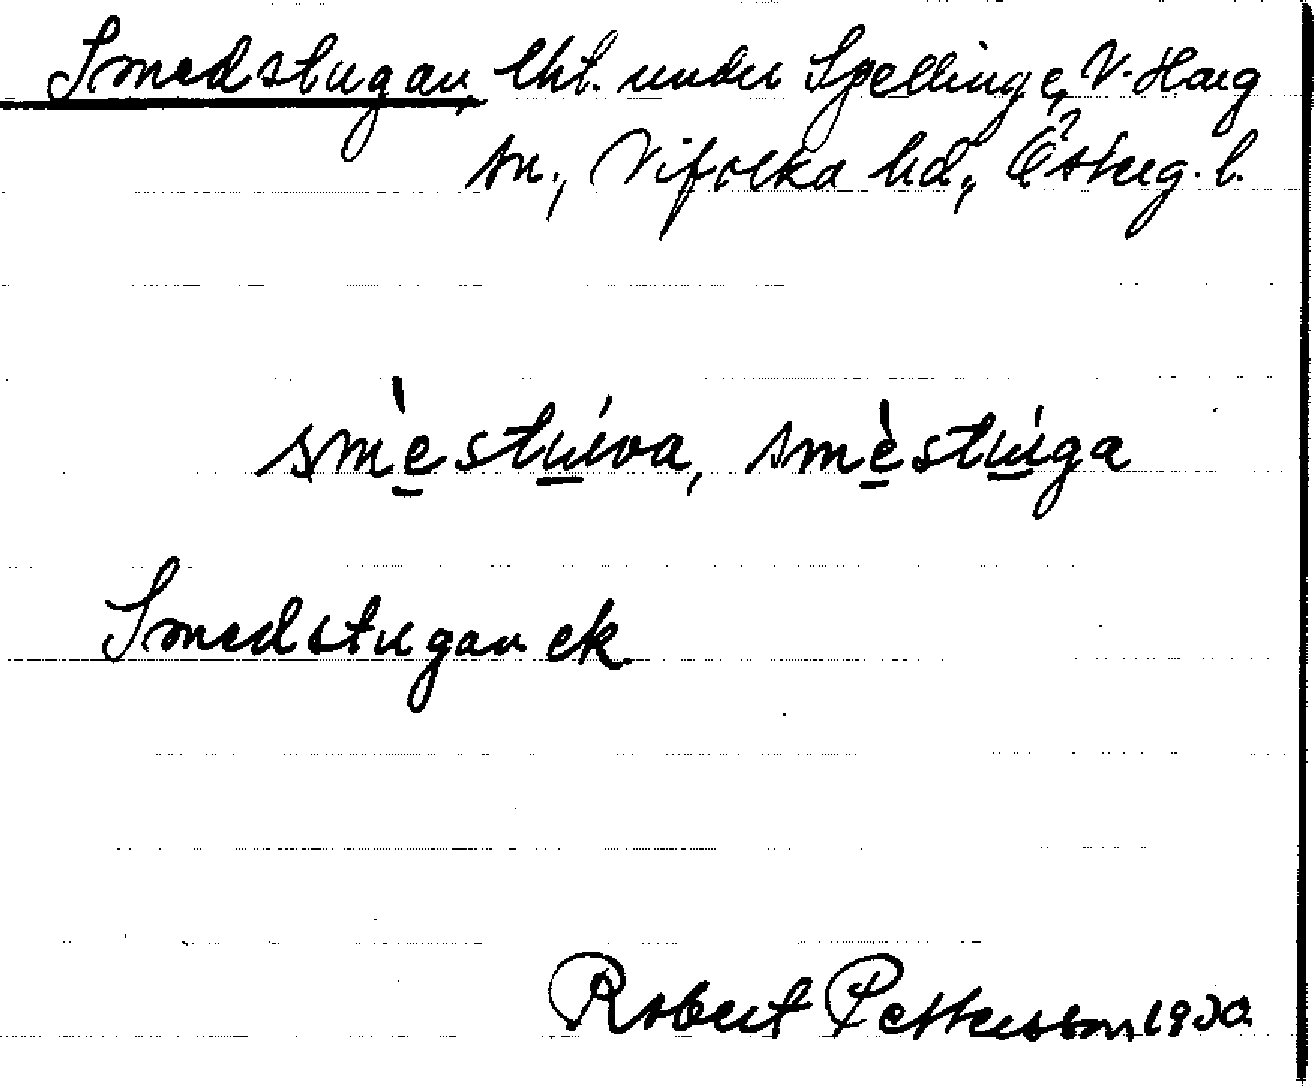 Smedstugan, lht. under Spellinge, V. Harg
sn., Vifolka hd, Österg. l.
smèstúva, smèstúga
Smedstugan ek
Robert Pettersson 1930